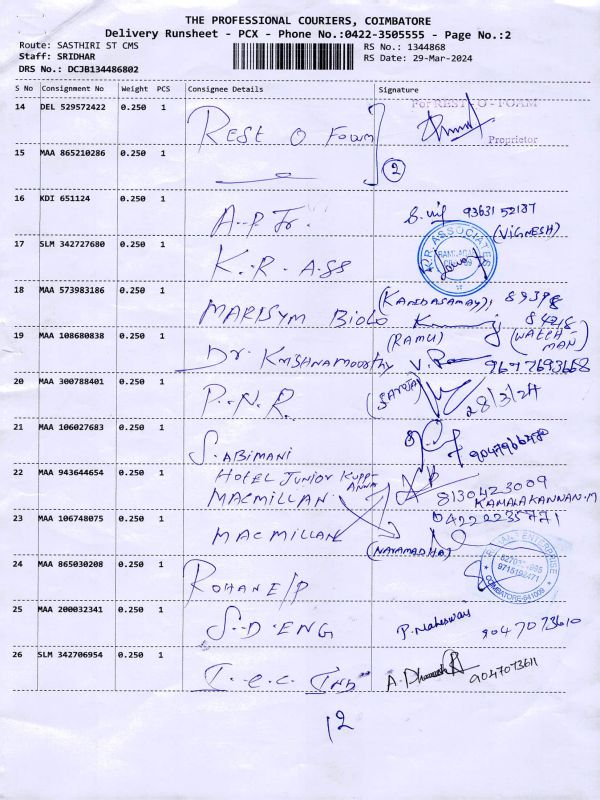 THE PROFESSIONAL COURIERS, COIMBATORE
Delivery Runsheet - PCX - Phone No.:0422-3505555 - Page No.:2
Route: SASTHIRI ST CMS
Staff: SRIDHAR
DRS No.: DCJB134486802
RS No.: 1344868
RS Date: 29-Mar-2024
S No Consignment No Weight PCS Consignee Details Signature
14 DEL 529572422 0.250 1 REST O Foam For REST - O - FOAM
Proprietor
15 MAA 865210286 0.250 1 2
16 KDI 651124 0.250 1 A.P Jr. 93631 52187
(VIGNESH)
17 SLM 342727680 0.250 1 K.R. ASS K.R. ASSOCIATES
18 MAA 573983186 0.250 1 MARISYM Biolo (KANDASAMAY)
19 MAA 108680838 0.250 1 Dr. KRISHNAMOORTHY (RAMU) (WATCH-
MAN)
20 MAA 300788401 0.250 1 P.N.R. 28/3/24
21 MAA 106027683 0.250 1 S.ABIMANI
22 MAA 943644654 0.250 1 HOTEL JUNIOR KUPP-
ANNA
MACMILLAN 8130423009
KAMALAKANNAN.M
23 MAA 106748075 0.250 1 MACMILLAN
24 MAA 865030208 0.250 1 ROHANE/P ENTERPRISE
COIMBATORE-641009
25 MAA 200032341 0.250 1 S.D.ENG P. Maheswari 9047073610
26 SLM 342706954 0.250 1 T.e.c. A. 9047073611
12